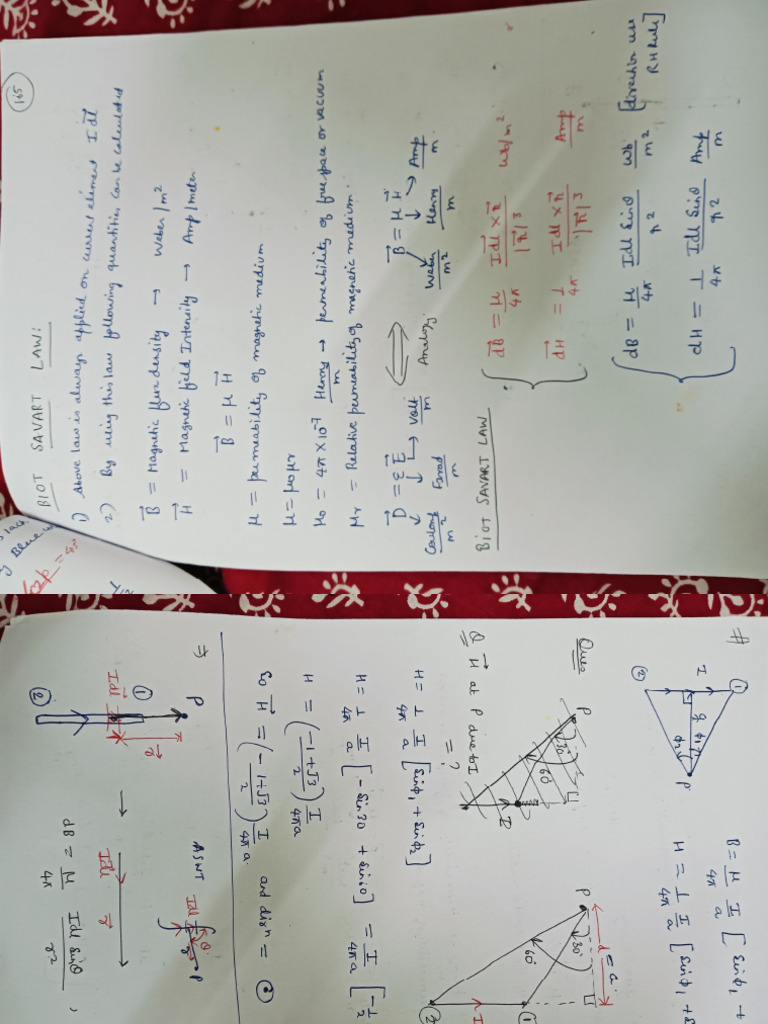 165
BIOT SAVART LAW:
1) Above law is always applied on current element I dl
2) By using this law following quantities can be calculated
B = Magnetic flux density → Weber/m²
H = Magnetic field Intensity → Amp/meter
B = μ H
μ = permeability of magnetic medium
μ = μ0 μr
μ0 = 4π × 10⁻⁷ Henry/m → permeability of free space or vacuum
μr = Relative permeability of magnetic medium.
D = ε E ⟺ B = μ H
Coulomb/m² Farad/m Volt/m Analogy Weber/m² Henry/m Amp/m
BIOT SAVART LAW
dB = μ/4π Idl × r/|r|³ Wb/m²
dH = 1/4π Idl × r/|r|³ Amp/m
dB = μ/4π Idl Sinθ/r² Wb/m² [direction use RH Rule]
dH = 1/4π Idl Sinθ/r² Amp/m
#
① ② I a φ1 φ2 P
B = μ/4π I/a [sinφ1 +
H = 1/4π I/a [sinφ1 +
Ques
Q H at P due to I = ?
P 30° 60° I
P 30° 60° d = a. ① ② I
H = 1/4π I/a [sinφ1 + sinφ2]
H = 1/4π I/a [-sin30 + sin60] = I/4πa [-1/2
H = (-1+√3/2) I/4πa
So H = (-1+√3/2) I/4πa and dirn = ⊙
② ① P Idl r
→ Idl r
Idl θ r P
dB = μ/4π Idl sinθ/r² ,